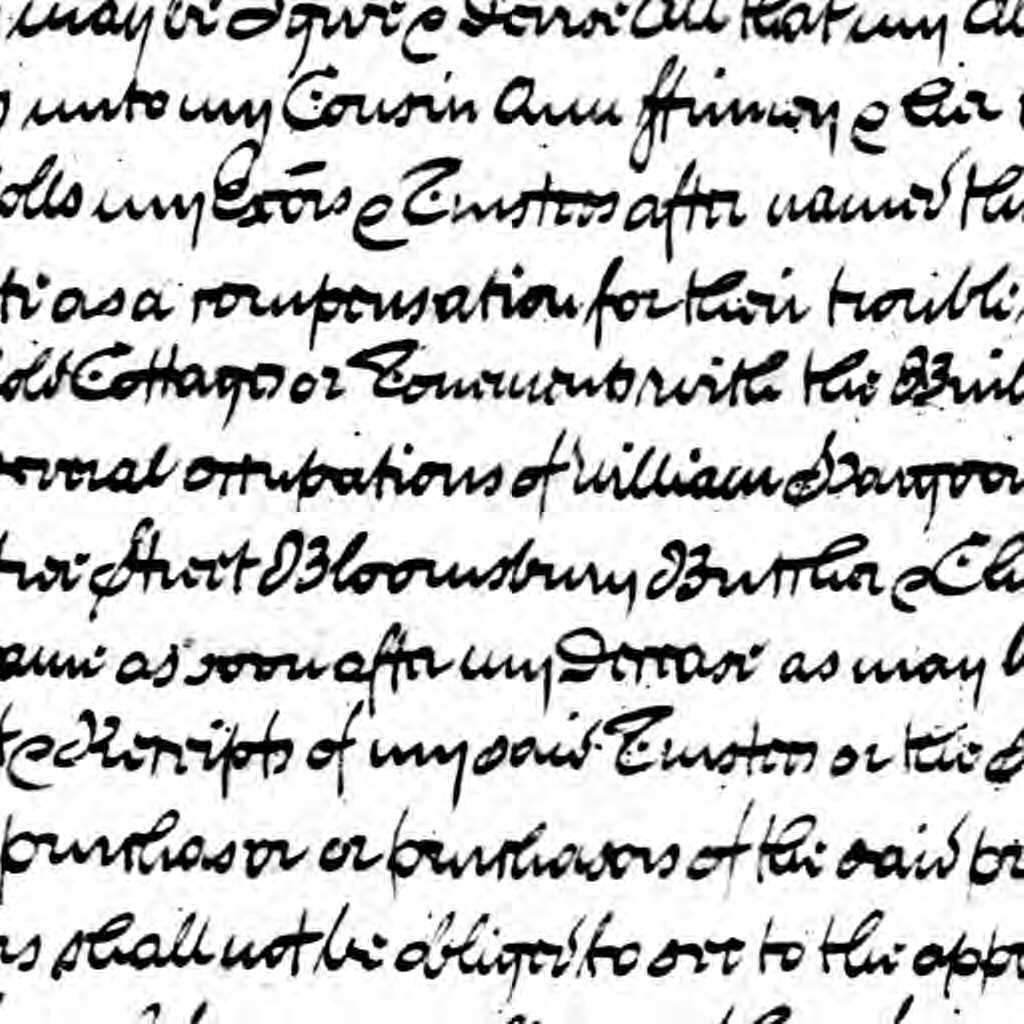 may be I give & Devise All that my
unto my Cousin Ann ffinney & her
olls my Exōrs & Trustees after named th
as a compensation for their trouble
old Cottages or Tenements with the Buil
several occupations of William
Street Bloomsbury Butcher & Eli
same as soon after my Decease as may b
& Receipts of my said Trustees or the
purchasor or purchasors of the said pr
rs shall not be obliged to see to the appr